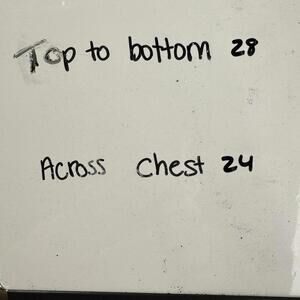 Top to bottom 28
Across Chest 24